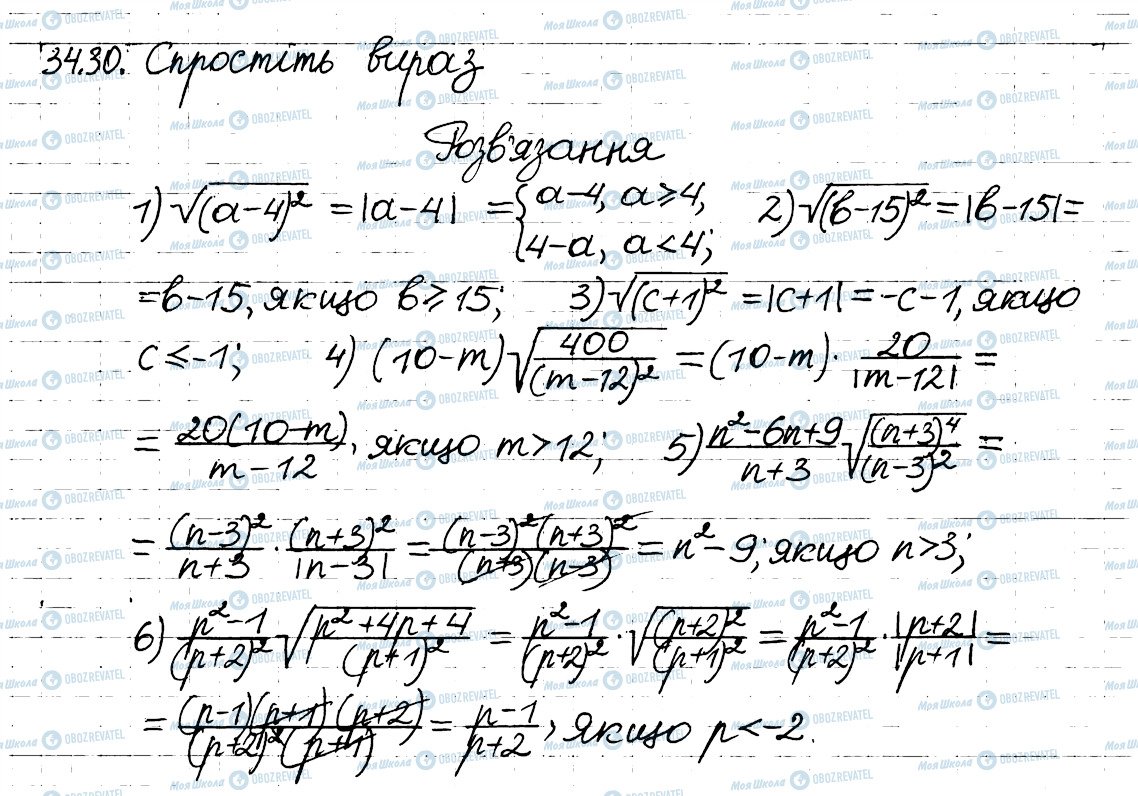 34.30. Спростіть вираз
Розв'язання
1) √(a-4)² = |a-4| = {a-4, a≥4, 4-a, a<4; 2) √(b-15)² = |b-15| =
= b-15, якщо b≥15; 3) √(c+1)² = |c+1| = -c-1, якщо
c≤-1; 4) (10-m)√(400/(m-12)²) = (10-m)·20/|m-12| =
= 20(10-m)/(m-12), якщо m>12; 5) (n²-6n+9)/(n+3) √((n+3)⁴/(n-3)²) =
= (n-3)²/(n+3) · (n+3)²/|n-3| = (n-3)²(n+3)²/((n+3)(n-3)) = n²-9; якщо n>3;
6) (p²-1)/(p+2)² √((p²+4p+4)/(p+1)²) = (p²-1)/(p+2)² · √((p+2)²/(p+1)²) = (p²-1)/(p+2)² · |p+2|/|p+1| =
= (p-1)(p+1)(p+2)/((p+2)²(p+1)) = (p-1)/(p+2), якщо p<-2.
Моя Школа OBOZREVATEL